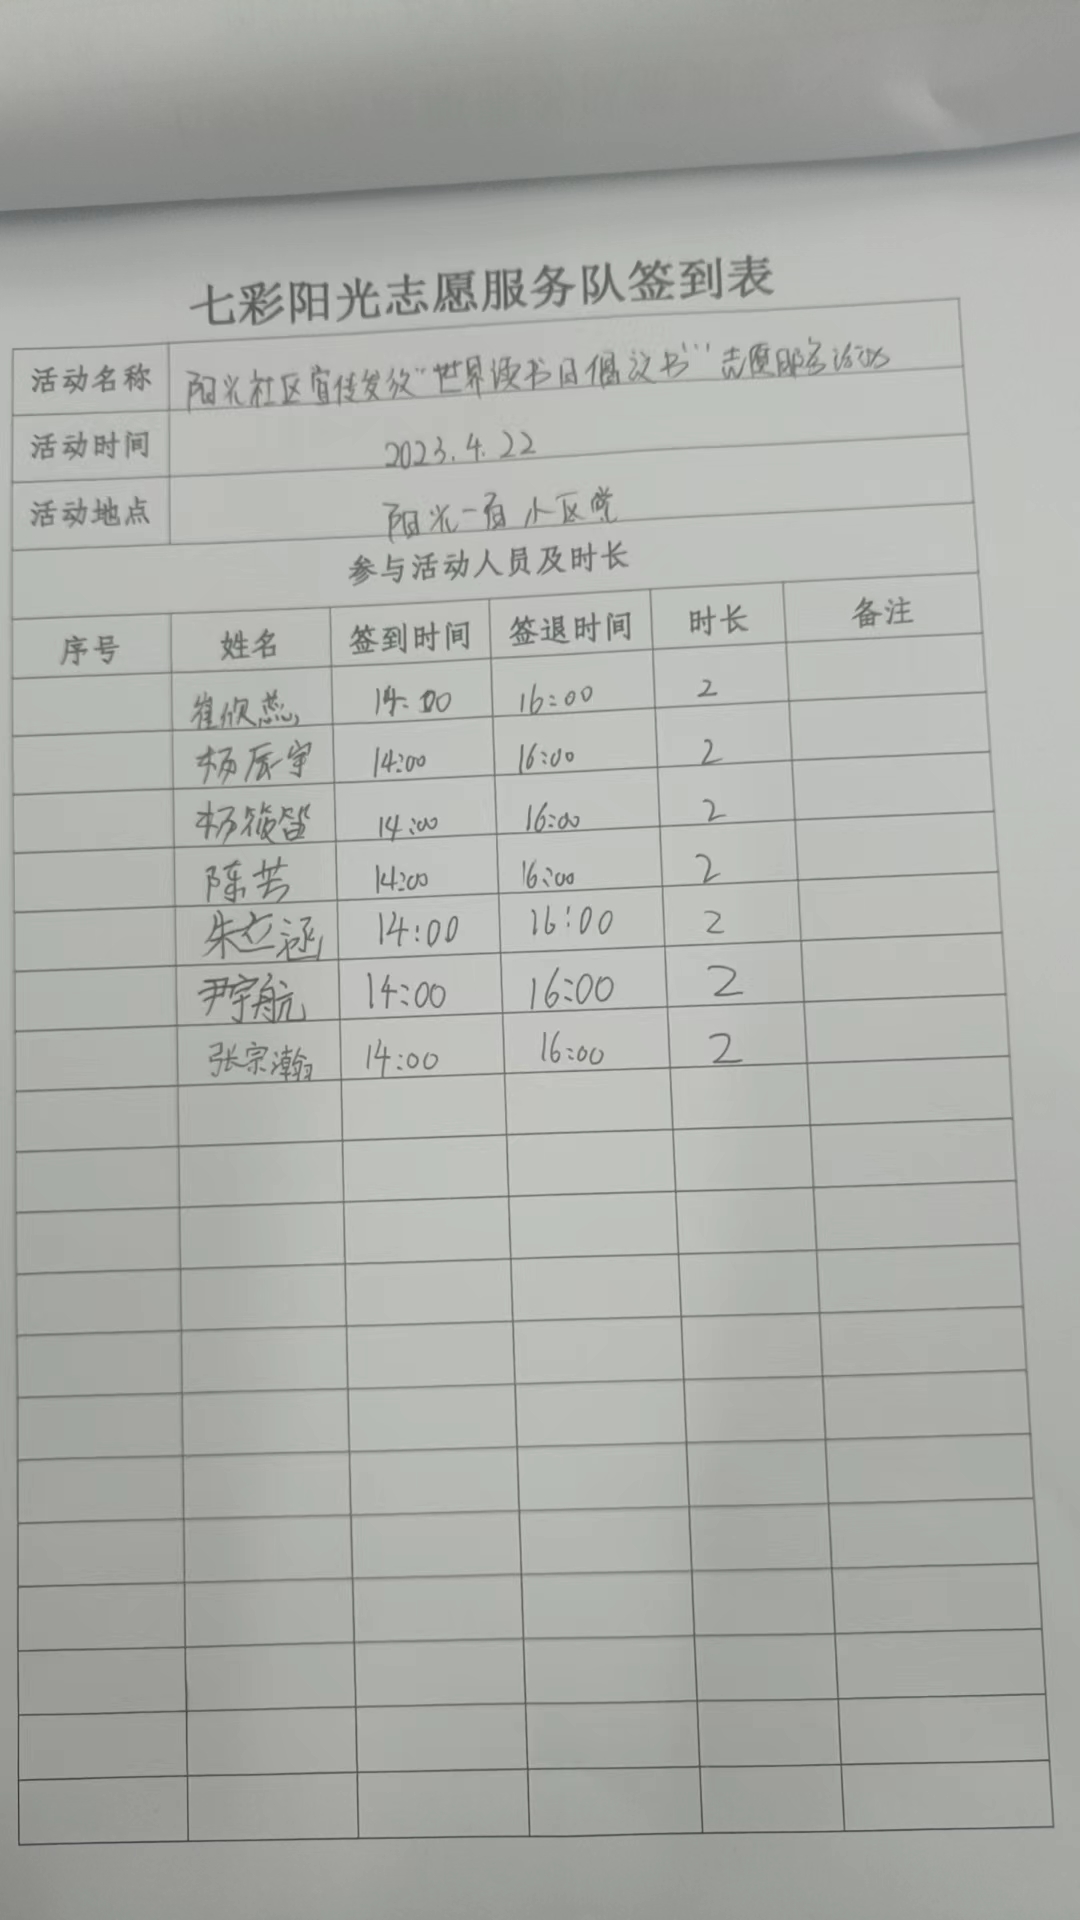 七彩阳光志愿服务队签到表
活动名称 阳光社区宣传发放“世界读书日倡议书”志愿服务活动
活动时间 2023.4.22
活动地点 阳光一百小区
参与活动人员及时长
序号 姓名 签到时间 签退时间 时长 备注
崔欣蕊 14:00 16:00 2
杨辰宇 14:00 16:00 2
杨筱笛 14:00 16:00 2
陈芸 14:00 16:00 2
朱立涵 14:00 16:00 2
尹宇航 14:00 16:00 2
张宗瀚 14:00 16:00 2